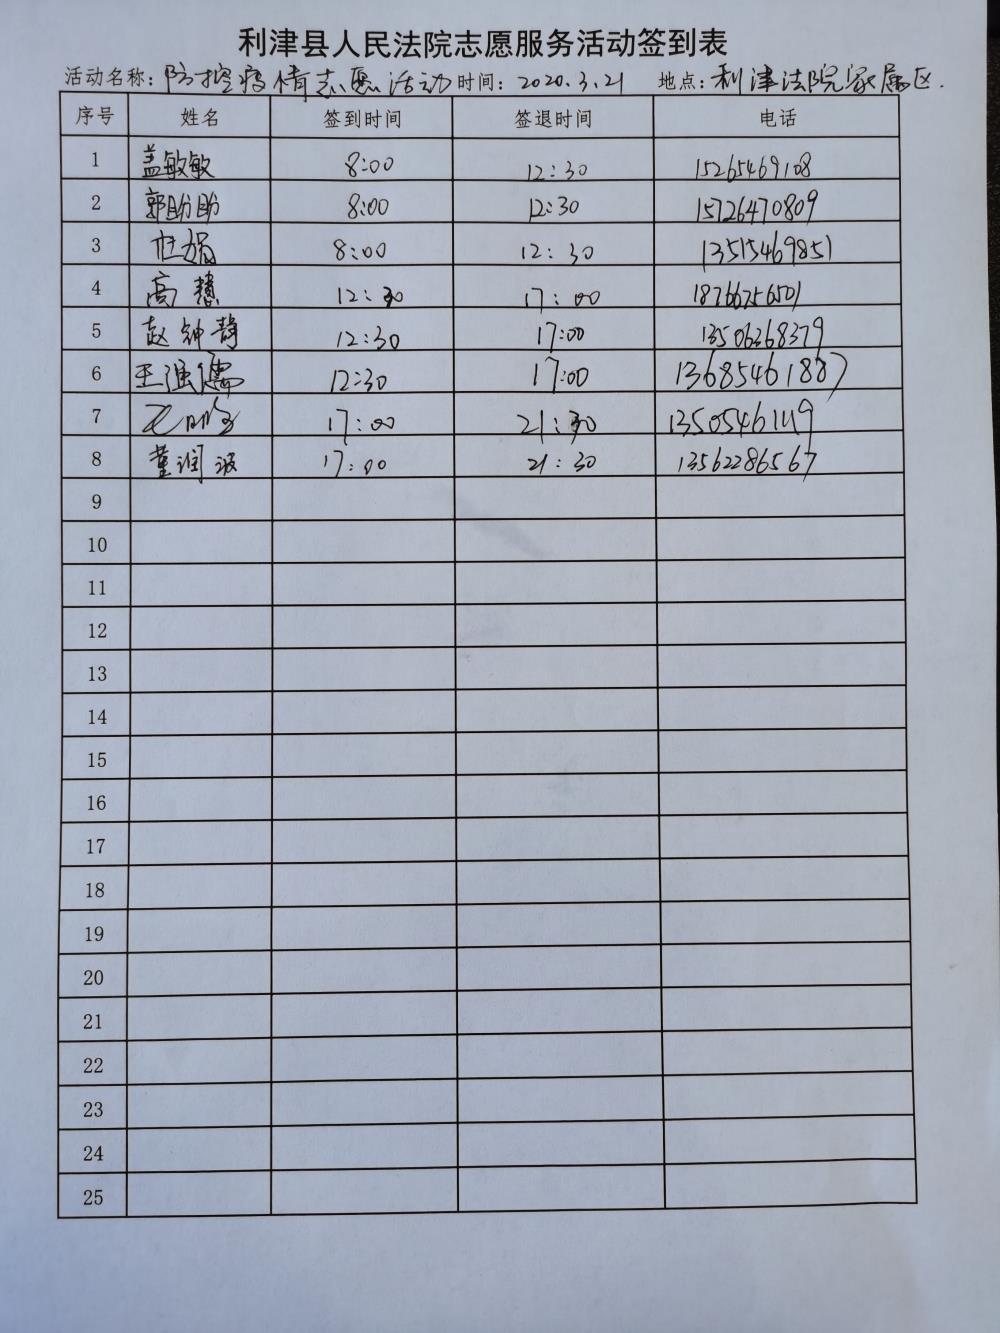 利津县人民法院志愿服务活动签到表
活动名称：防控疫情志愿活动 时间：2020.3.21 地点：利津法院家属区.
序号 姓名 签到时间 签退时间 电话
1 盖敏敏 8:00 12:30 15265469108
2 郭盼盼 8:00 12:30 15726470809
3 杜娟 8:00 12:30 13515469851
4 高慧 12:30 17:00 18766756501
5 赵钟静 12:30 17:00 13506368379
6 王强儒 12:30 17:00 13685461887
7 17:00 21:30
8 董润波 17:00 21:30 13562286567
9
10
11
12
13
14
15
16
17
18
19
20
21
22
23
24
25